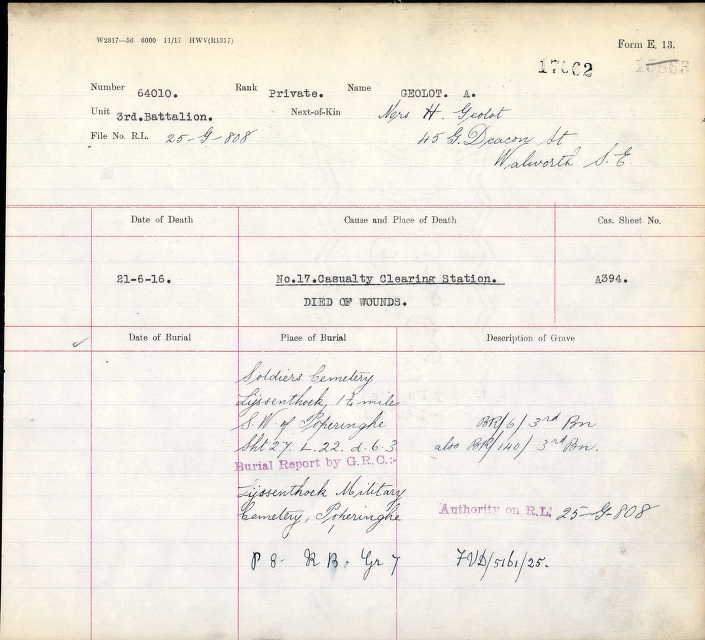 W2817—56 6000 11/17 HWV(R1317)
Form E, 13.
17062
Number 64010. Rank Private. Name GEOLOT. A.
Unit 3rd.Battalion. Next-of-Kin Mrs H. Geolot
File No. R.L. 25-G-808 45 G. Deacon St
Walworth S.E.
Date of Death Cause and Place of Death Cas. Sheet No.
21-6-16. No.17.Casualty Clearing Station. A394.
DIED OF WOUNDS.
Date of Burial Place of Burial Description of Grave
Soldiers Cemetery
Lijssenthoek, miles
S.W. of Poperinghe BR/6/3rd Bn
Sht 27. L.22. d.6.3 also BR/140/3rd Bn.
Burial Report by G.R.C:-
Lijssenthoek Military
Cemetery, Poperinghe Authority on R.L. 25-G-808
P 8. R B. Gr 7 FVD/5161/25.